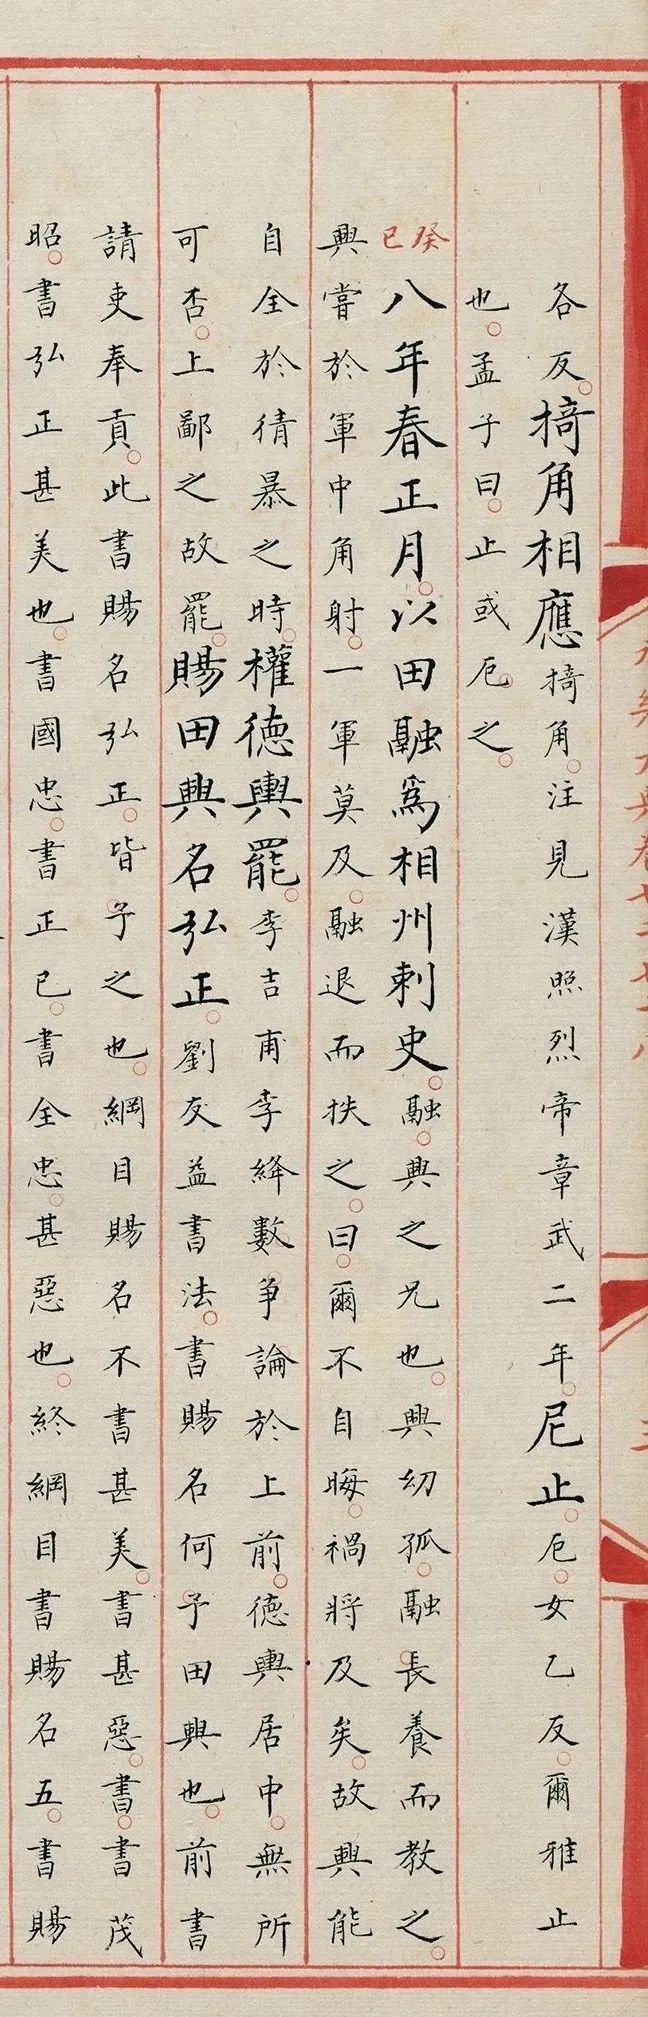 各反。掎角相應掎角。注見漢照烈帝章武二年。尼止。厄。女乙反。爾雅止
也。孟子曰。止或厄之。
癸巳八年春正月。以田融爲相州刺史。融。興之兄也。興幼孤。融長養而教之。
興嘗於軍中角射。一軍莫及。融退而抶之。曰。爾不自晦。禍將及矣。故興能
自全於猜暴之時。權德輿罷。李吉甫李絳數爭論於上前。德輿居中。無所
可否。上鄙之故罷。賜田興名弘正。劉友益書法。書賜名何。予田興也。前書
請吏奉貢。此書賜名弘正。皆予之也。綱目賜名不書甚美。書甚惡。書。書茂
昭。書弘正甚美也。書國忠。書正已。書全忠。甚惡也。終綱目書賜名五。書賜